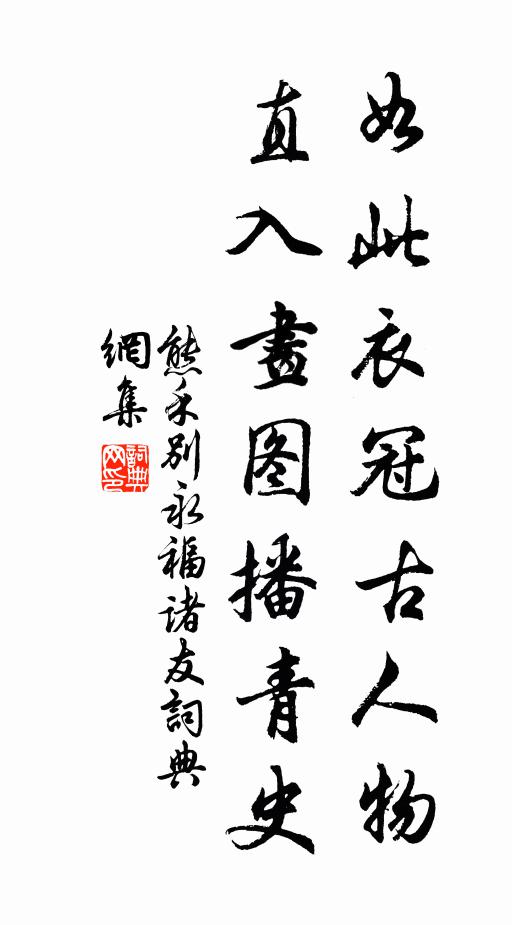 如此衣冠古人物
直入畫图播青史
熊禾別永福諸友詞典
網集
詞典
网印